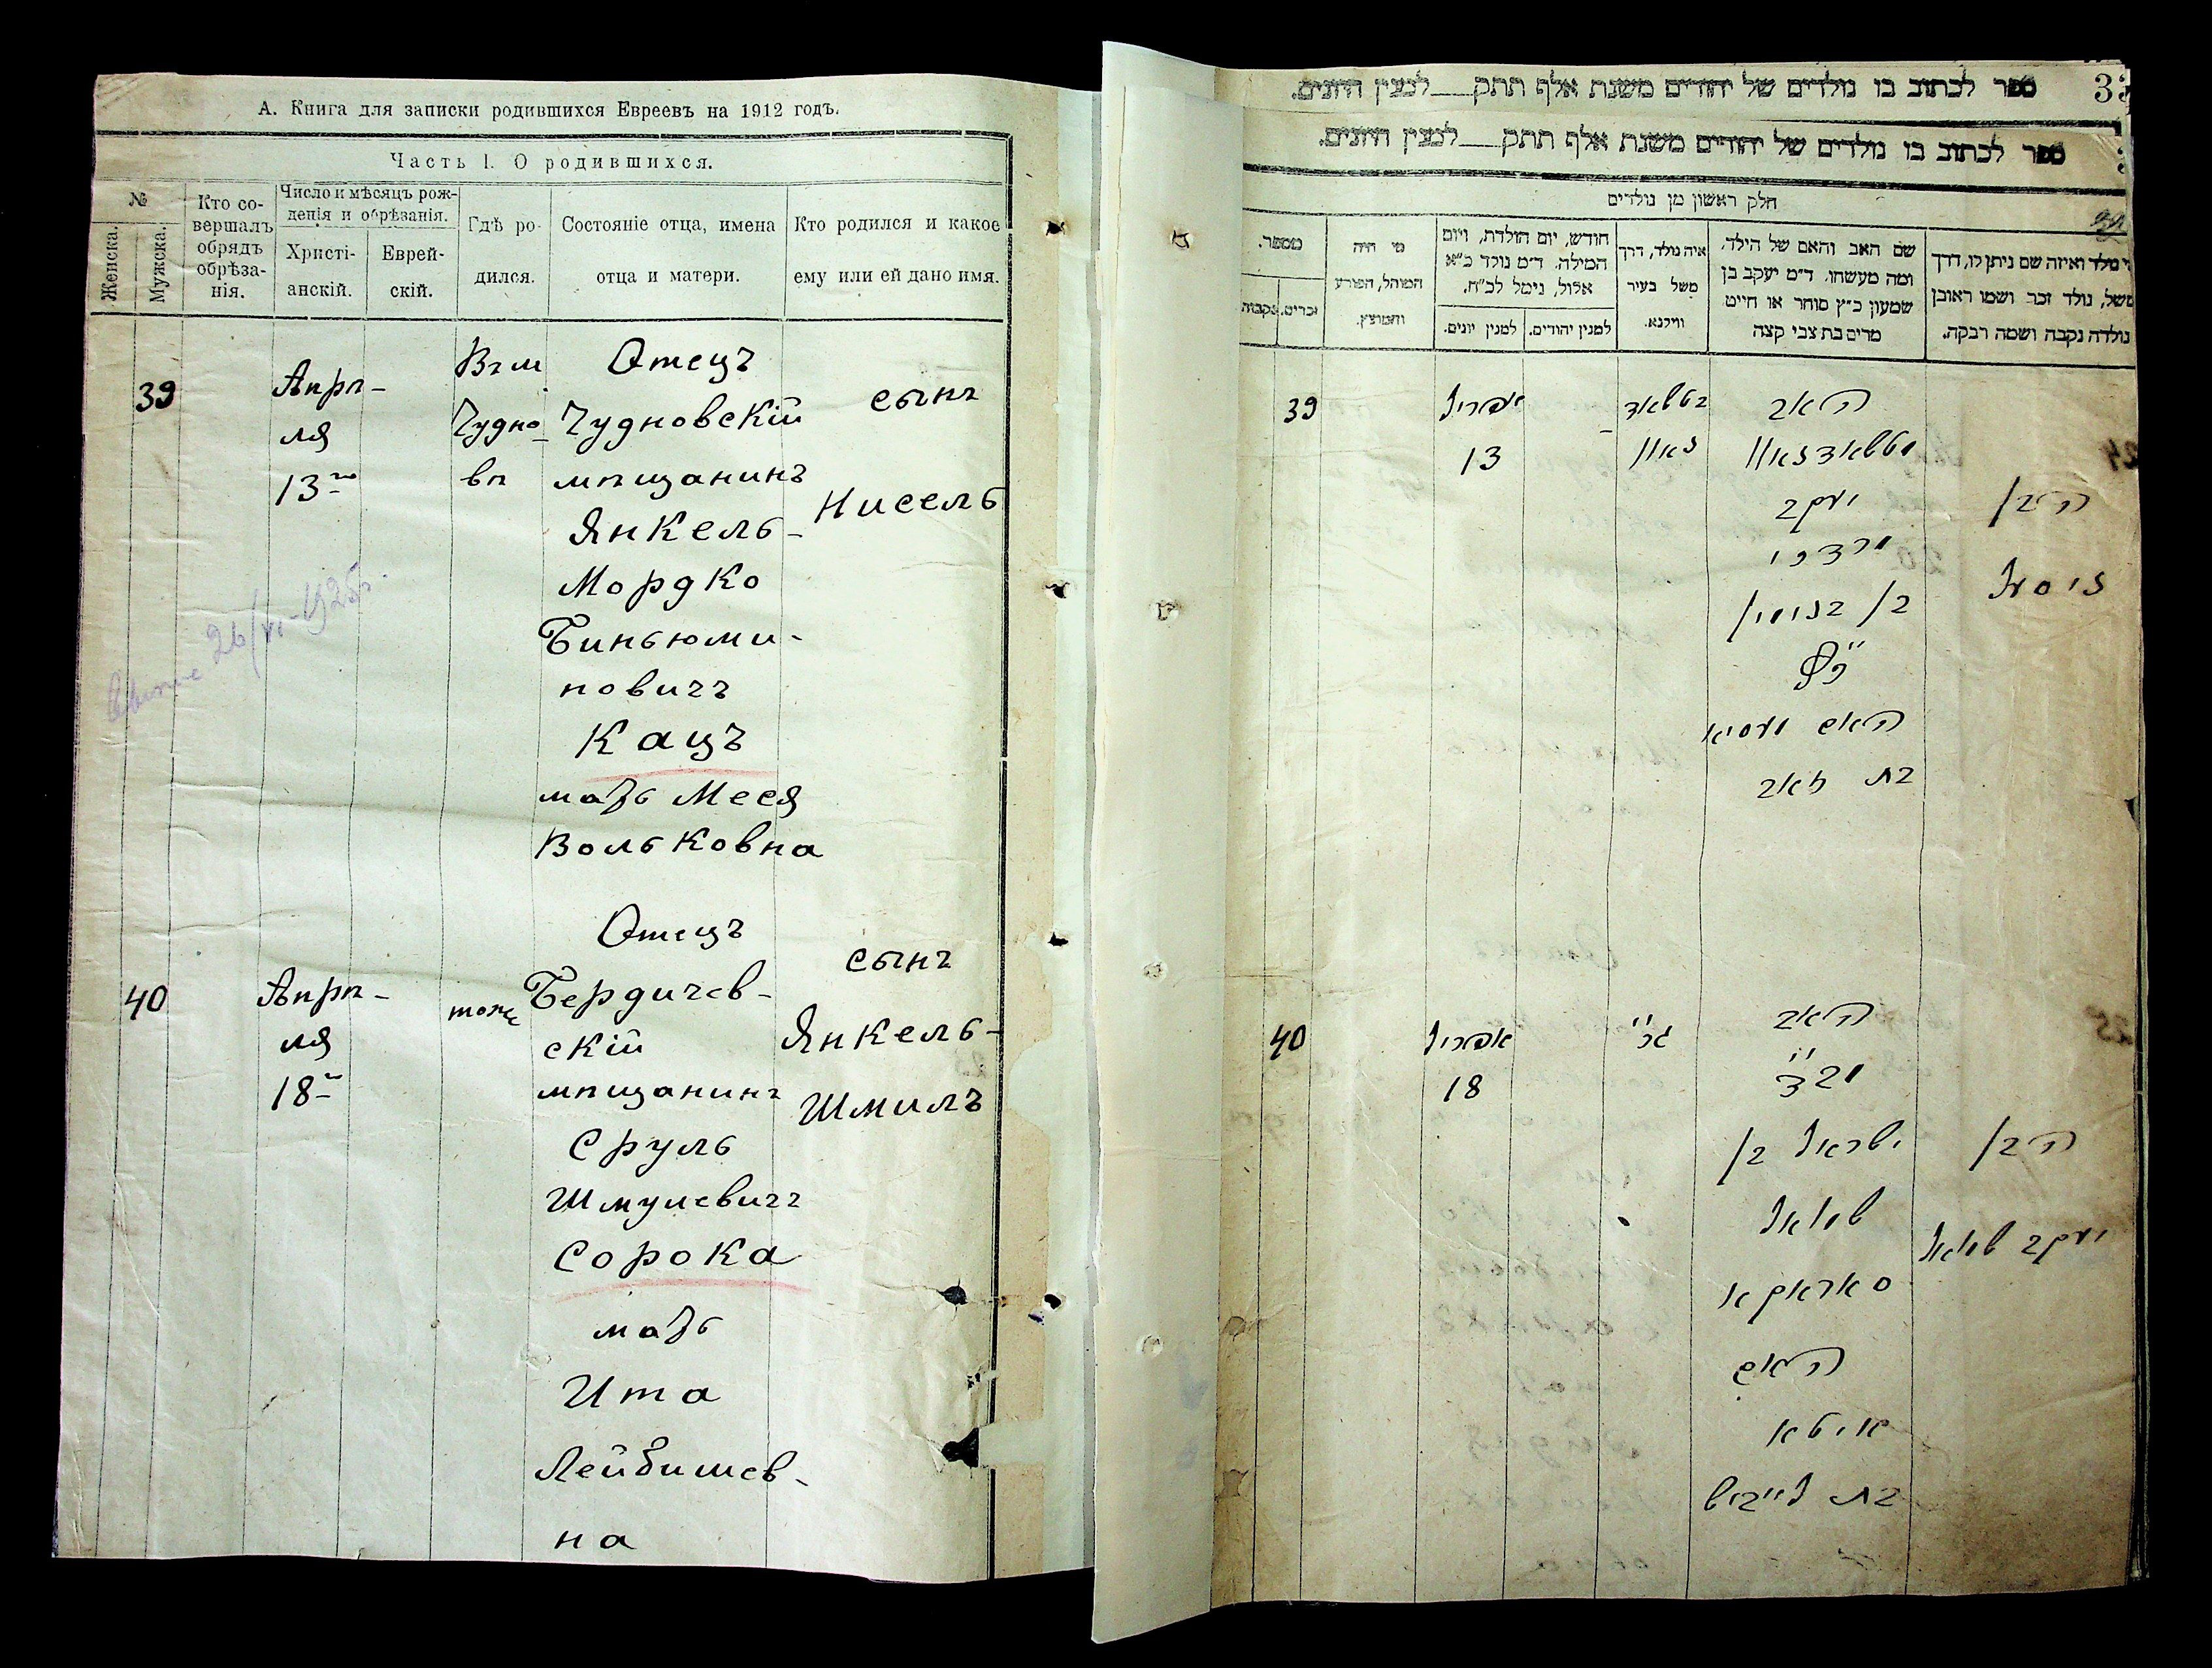 А. Книга для записки родившихся Евреевъ на 1912 годъ.
Часть I. О родившихся.
№
Женска.
Мужска.
Кто со-
вершалъ
обрядъ
обрѣза-
нія.
Число и мѣсяцъ рож-
денія и обрѣзанія.
Христі-
анскій.
Еврей-
скій.
Гдѣ ро-
дился.
Состояніе отца, имена
отца и матери.
Кто родился и какое
ему или ей дано имя.
39
Апрѣ-
ля
13го
Въ м
Чудно-
вѣ
Отецъ
Чудновскій
мѣщанинъ
Янкель-
Мордко
Биньюми-
новичъ
Кацъ
мать Меся
Вольковна
сынъ
Нисель
26/VI-1925г.
40
Апрѣ-
ля
18го
тоже
Отецъ
Бердичев-
скій
мѣщанинъ
Сруль
Шмулевичъ
Сорока
мать
Ита
Лейбишев-
на
сынъ
Янкель-
Шмилъ
ספר לכתוב בו נולדים של יהודים משנת אלף תתק___למנין היונים.
ספר לכתוב בו נולדים של יהודים משנת אלף תתק___למנין היונים.
חלק ראשון מן נולדים
מספר.
זכרים.
נקבות
מי היה
המוהל, הפורע
והמוצץ.
חודש, יום הולדת, ויום
המילה. ד״מ נולד כ״א
אלול, נימל לכ״ח.
למנין יהודים.
למנין יונים.
איה נולד, דרך
משל בעיר
ווילנא.
שם האב והאם של הילד,
ומה מעשהו. ד״מ יעקב בן
שמעון כ״ץ סוחר או חייט
מרים בת צבי קצה
מי נולד ואיזה שם ניתן לו, דרך
משל, נולד זכר ושמו ראובן
נולדה נקבה ושמה רבקה.
39
אפריל
13
בטשאד
נאוו
האב
מטשאדנאוו
יעקב
מרדכי
בן בנימין
כ״ץ
האם מעסיא
בת זאב
הבן
ניסל
40
אפריל
18
גר״י
האב
ישראל בן
שמואל
סאראקא
האם
איטא
בת לייביש
הבן
יעקב שמואל